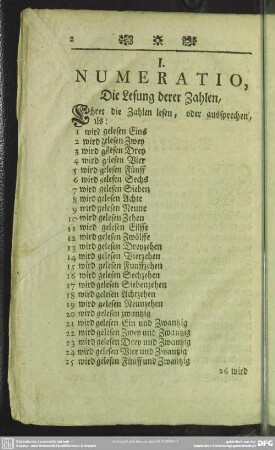 2
I.
NUMERATIO,
Die Lesung derer Zahlen,
Lehret die Zahlen lesen, oder aussprechen,
als:
1 wird gelesen Eins
2 wird gelesen Zwey
3 wird gelesen Drey
4 wird gelesen Vier
5 wird gelesen Fünff
6 wird gelesen Sechs
7 wird gelesen Sieben
8 wird gelesen Achte
9 wird gelesen Neune
10 wird gelesen Zehen
11 wird gelesen Eilffe
12 wird gelesen Zwölffe
13 wird gelesen Dreyzehen
14 wird gelesen Vierzehen
15 wird gelesen Funffzehen
16 wird gelesen Sechzehen
17 wird gelesen Siebenzehen
18 wird gelesen Achzehen
19 wird gelesen Neunzehen
20 wird gelesen zwantzig
21 wird gelesen Ein und Zwantzig
22 wird gelesen Zwey und Zwantzig
23 wird gelesen Drey und Zwantzig
24 wird gelesen Vier und Zwantzig
25 wird gelesen Fünff und Zwantzig
26 wird
DFG